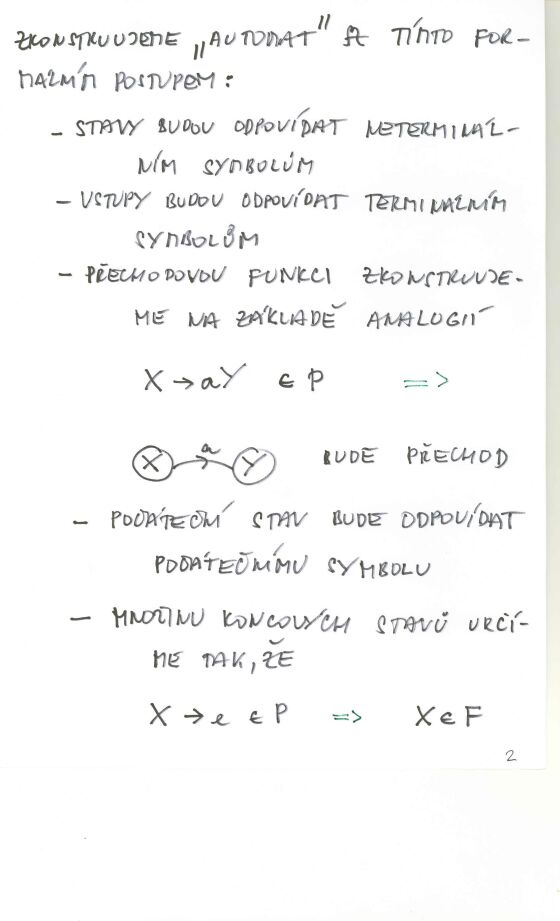 ZKONSTRUUJEME „AUTOMAT" A TÍMTO FOR-
MÁLNÍM POSTUPEM:
- STAVY BUDOU ODPOVÍDAT NETERMINÁL-
NÍM SYMBOLŮM
- VSTUPY BUDOU ODPOVÍDAT TERMINÁLNÍM
SYMBOLŮM
- PŘECHODOVOU FUNKCI ZKONSTRUUJE-
ME NA ZÁKLADĚ ANALOGIÍ
X → aY ∈ P =>
X a Y BUDE PŘECHOD
- POČÁTEČNÍ STAV BUDE ODPOVÍDAT
POČÁTEČNÍMU SYMBOLU
- MNOŽINU KONCOVÝCH STAVŮ URČÍ-
ME TAK, ŽE
X → e ∈ P => X ∈ F
2